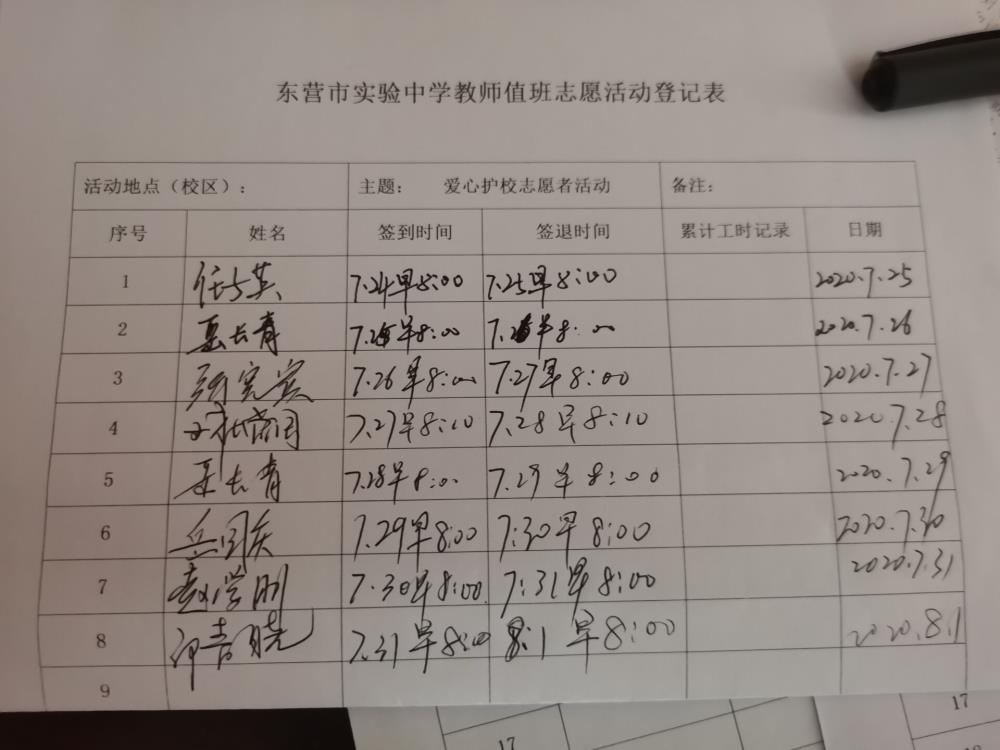 东营市实验中学教师值班志愿活动登记表
活动地点（校区）： 主题： 爱心护校志愿者活动 备注：
序号 姓名 签到时间 签退时间 累计工时记录 日期
1 7.24早8:00 7.25早8:00 2020.7.25
2 长青 7.25早8:00 7.26早8:00 2020.7.26
3 7.26早8:00 7.27早8:00 2020.7.27
4 7.27早8:10 7.28早8:10 2020.7.28
5 长青 7.28早8:00 7.29早8:00 2020.7.29
6 7.29早8:00 7:30早8:00 2020.7.30
7 赵学刚 7.30早8:00. 7:31早8:00 2020.7.31
8 7.31早8:00 8:1早8:00 2020.8.1
9
17
17